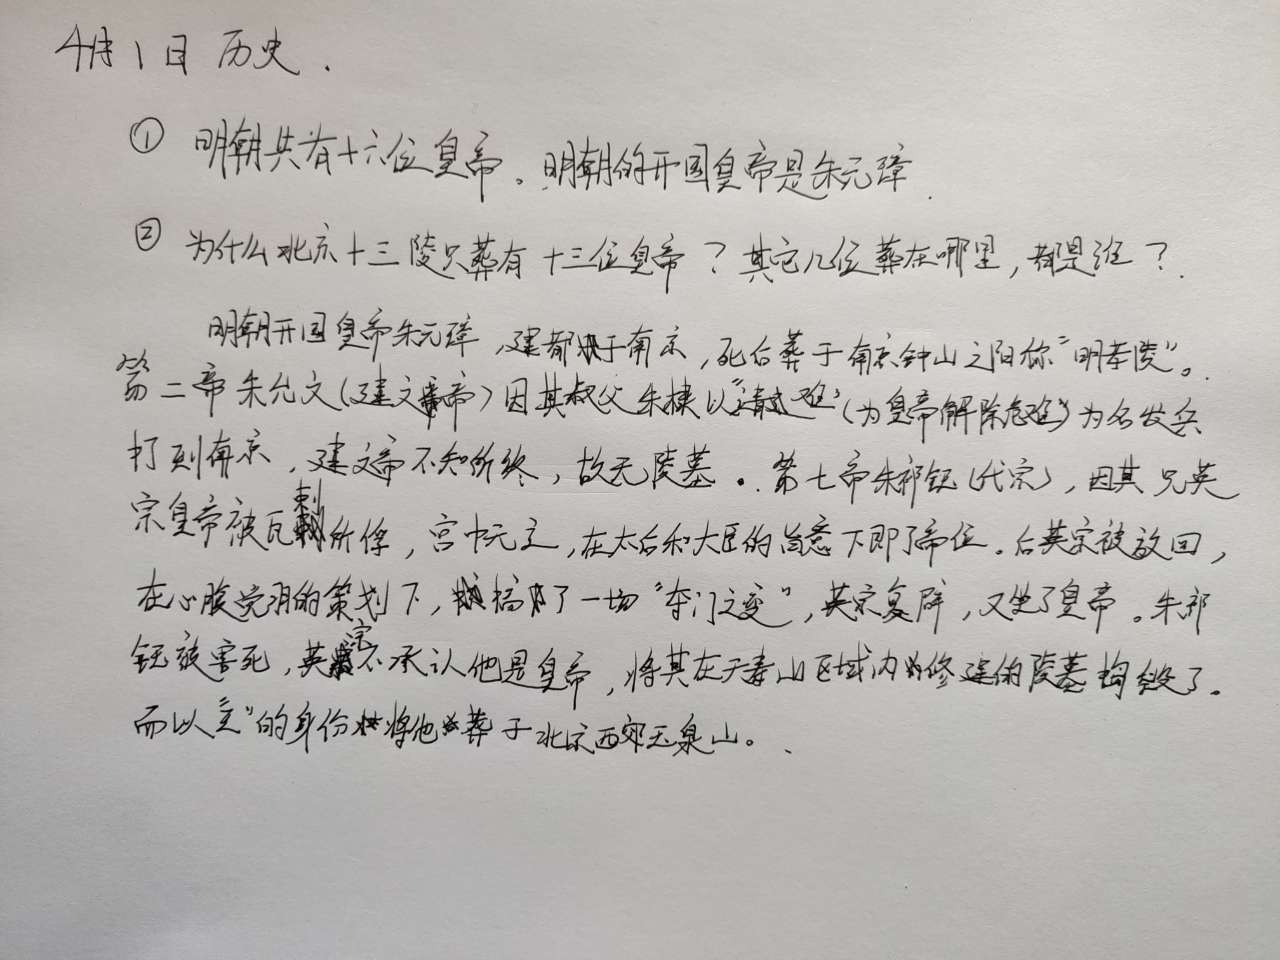 4月1日 历史.
① 明朝共有十六位皇帝。明朝的开国皇帝是朱元璋.
② 为什么北京十三陵只葬有十三位皇帝？其它几位葬在哪里，都是谁？.
明朝开国皇帝朱元璋，建都于南京，死后葬于南京钟山之阳称“明孝陵”。
第二帝朱允文(建文帝)因其叔父朱棣以“靖难”(为皇帝解除危难)为名发兵
打到南京，建文帝不知所终，故无陵墓。第七帝朱祁钰(代宗)，因其兄英
宗皇帝被瓦剌所俘，宫中无主，在太后和大臣的旨意下即了帝位。后英宗被放回，
在心腹党羽的策划下，搞了一场“夺门之变”，英宗复辟，又坐了皇帝。朱祁
钰被害死，英宗不承认他是皇帝，将其在天寿山区域内修建的陵墓捣毁了。
而以“王”的身份将他葬于北京西郊玉泉山。